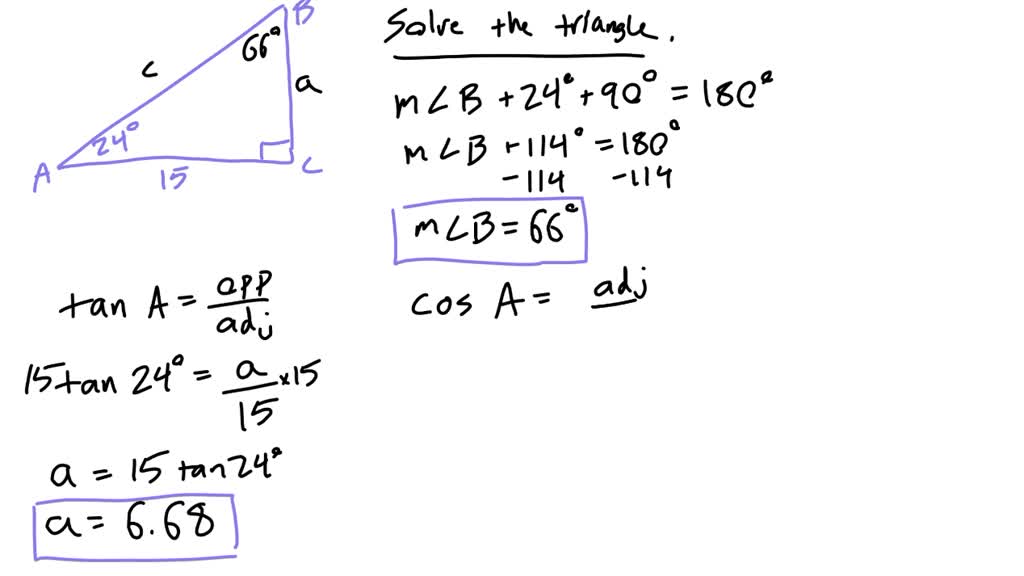 B
66°
c
a
24°
A
15
C
Solve the triangle.
m∠B + 24° + 90° = 180°
m∠B + 114° = 180°
-114 -114
m∠B = 66°
tan A = opp/adj
15 tan 24° = a/15 × 15
a = 15 tan 24°
a = 6.68
cos A = adj